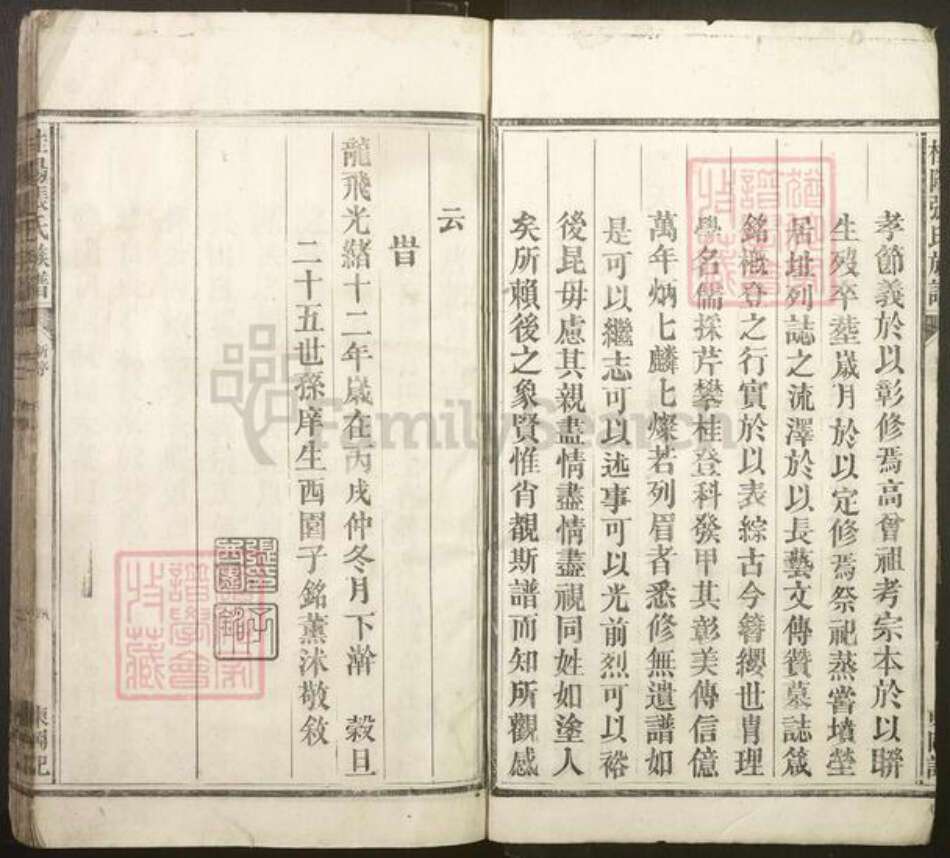 孝節義於以彰修焉高曾祖考宗本於以聯
生歿卒塟歲月於以定修焉祭祀蒸嘗墳塋
居址列誌之流澤於以長藝文傳贊墓誌箴
銘概登之行實於以表綜古今簪纓世胄理
學名儒採芹攀桂登科發甲其彰美傳信億
萬年炳匕麟匕燦若列眉者悉修無遺譜如
是可以繼志可以述事可以光前烈可以裕
後昆毋慮其親盡情盡情盡視同姓如塗人
矣所賴後之象賢惟省覩斯譜而知所觀感
云
旹
龍飛光緒十二年歲在丙戌仲冬月下澣 穀旦
二十五世孫庠生西園子銘薰沐敬敘
張氏族譜
新序
譜學會
收藏
FamilySearch